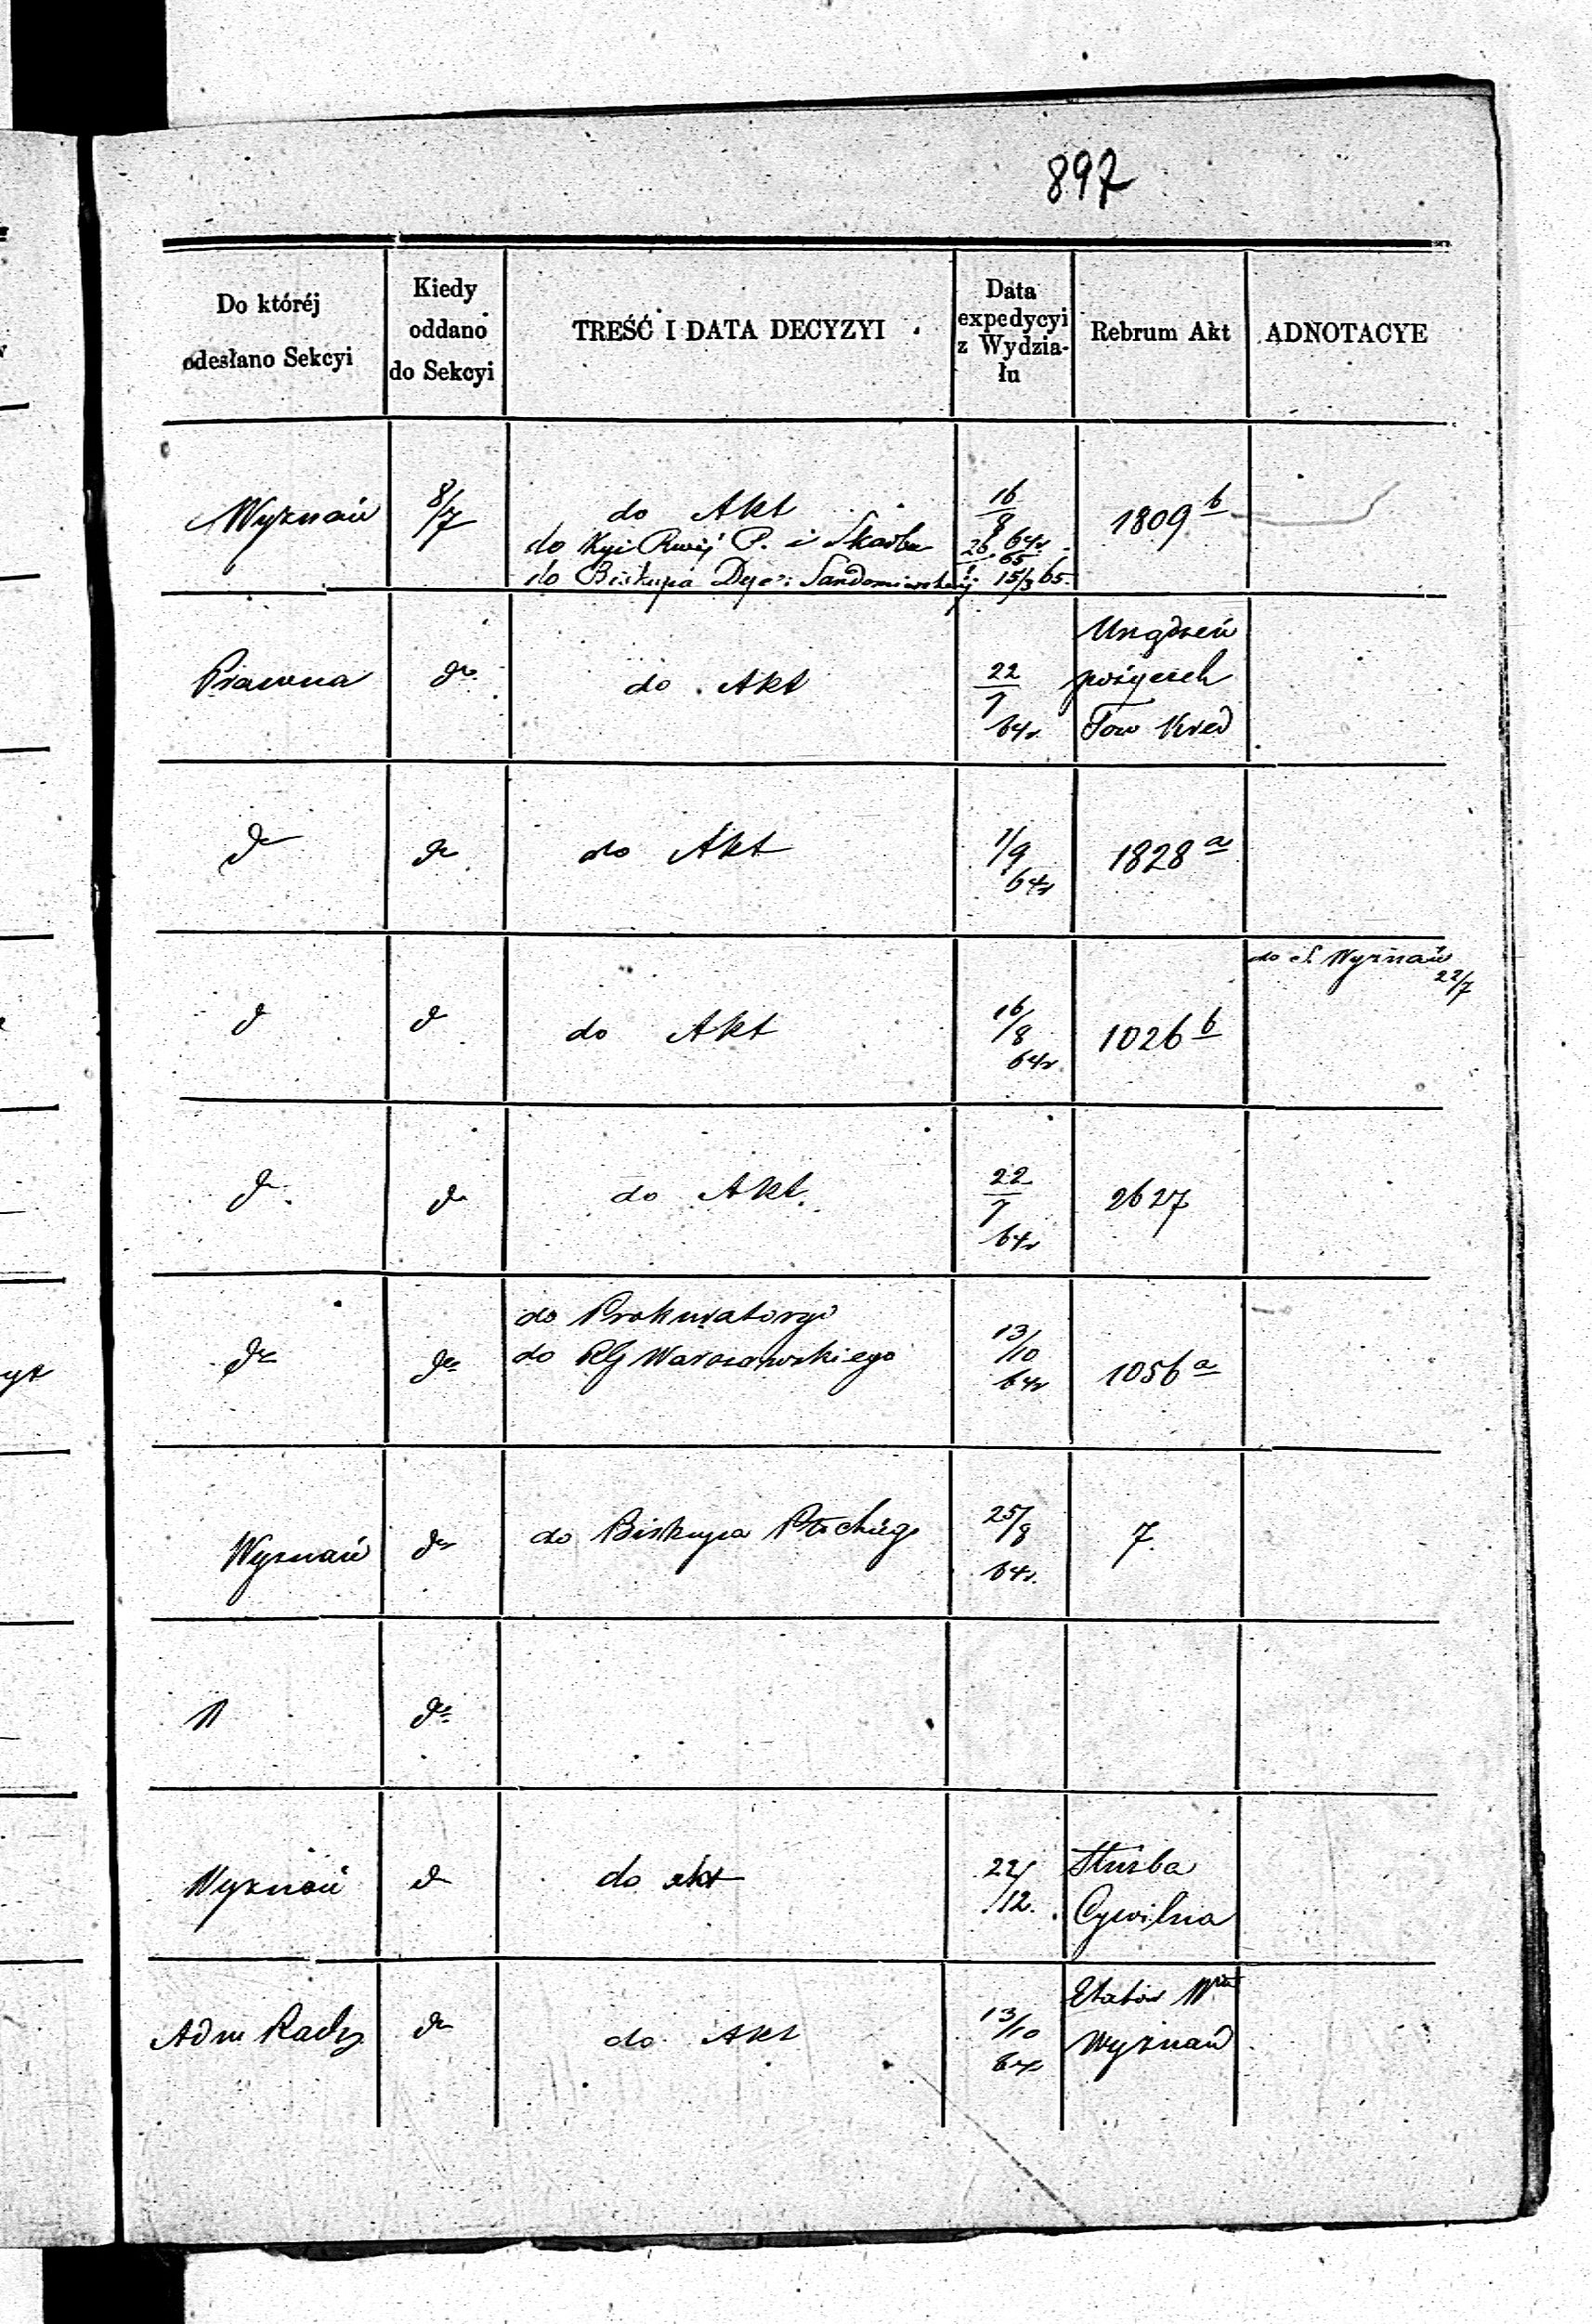 897
Do któréj
odesłano Sekcyi
Kiedy
oddano
do Sekcyi
TREŚĆ I DATA DECYZYI
Data
expedycyi
z Wydzia-
łu
Rebrum Akt
ADNOTACYE
Wyznań
8/7
do Akt
do Kyi Rwéj P. i Skarbu
do Biskupa Dyez: Sandomierskiej
16
8
64r
26
65
15/3 65.
1809 b
Prawna
do
do Akt
22
7
64r
pożyczek
Tow Kred
do
do
do Akt
1/9
64r
1828 a
do
do
do Akt
16/8
64r
1026 b
do S. Wyznań
22/7
do
do
do Akt
22
7
64r
2627
do
do
do Prokuratoryi
do RG Warszawskiego
13/10
64r
1056 a
Wyznań
do
do Biskupa Płockiego
25/8
64r.
7.
do
Wyznań
do
do akt
22/12.
Służba
Cywilna
Adm Rady
do
do Akt
13/10
64r
Wyznań